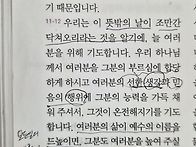 기 때문입니다.
11-12 우리는 이 뜻밖의 날이 조만간
닥쳐오리라는 것을 알기에, 늘 여러분
을 위해 기도합니다. 우리 하나님
께서 여러분을 그분의 부르심에 합당
하게 하시고 여러분의 선한 생각과 믿
음의 행위에 그분의 능력을 가득 채
워 주셔서, 그것이 온전해지기를 기도
합니다. 여러분의 삶이 예수의 이름을
드높이면, 그분도 여러분을 높여 주